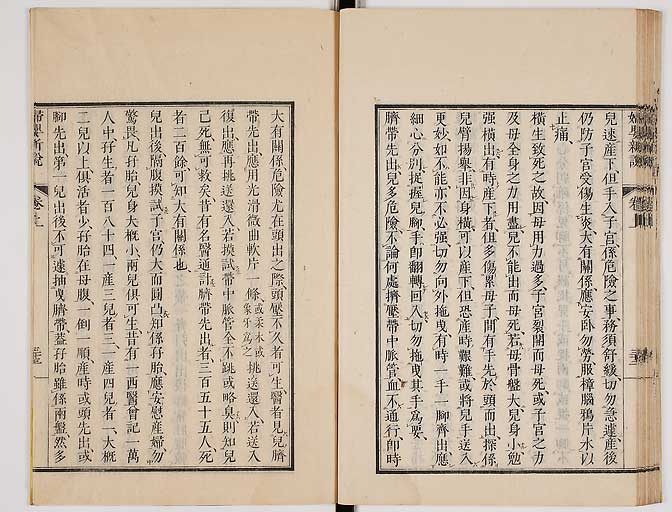 兒速產下但手入子宮係危險之事務須舒緩切勿急遽產後
仍防子宮受傷生炎大有關係應安臥勿勞服樟腦鴉片水以
止痛
橫生致死之故因母用力過多子宮裂開而母死或子宮之力
及母全身之力用盡兒不能出而母死若母骨盤大兒身小勉
强橫出有時產下者但多傷累母子間有手先於頭而出探係
兒臂揚舉非因身橫可以產下但恐產時艱難或將兒手送入
更妙如不能亦不必强切勿向外拖曳有時一手一腳齊出應
細心分別捉握兒腳手卽翻轉回入切勿拖曳其手爲要
臍帶先出兒多危險不論何處擠壓帶中脈管血不通行卽時
大有關係危險尤在頭出之際頭壓不久者可生醫者見兒臍
帶先出應用光滑微曲軟片一條或柔木或象牙爲之挑送還入若送入
復出應再挑送還入若摸試帶中脈管全不跳或略臭則知兒
已死無可救矣昔有名醫通計臍帶先出者三百五十五人死
者二百餘可知大有關係也
兒出後隔腹摸試子宮仍大而圓凸知係孖胎應安慰產婦勿
驚畏凡孖胎兒身大槪小兩兒俱可生昔有一西醫曾記一萬
人中孖生者一百八十四一產三兒者三一產四兒者一大槪
二兒以上俱活者少孖胎在母腹一倒一順產時或頭先出或
腳先出第一兒出後不可遽抽曳臍帶蓋孖胎雖係兩盤然多
婦嬰新說
卷
三十三